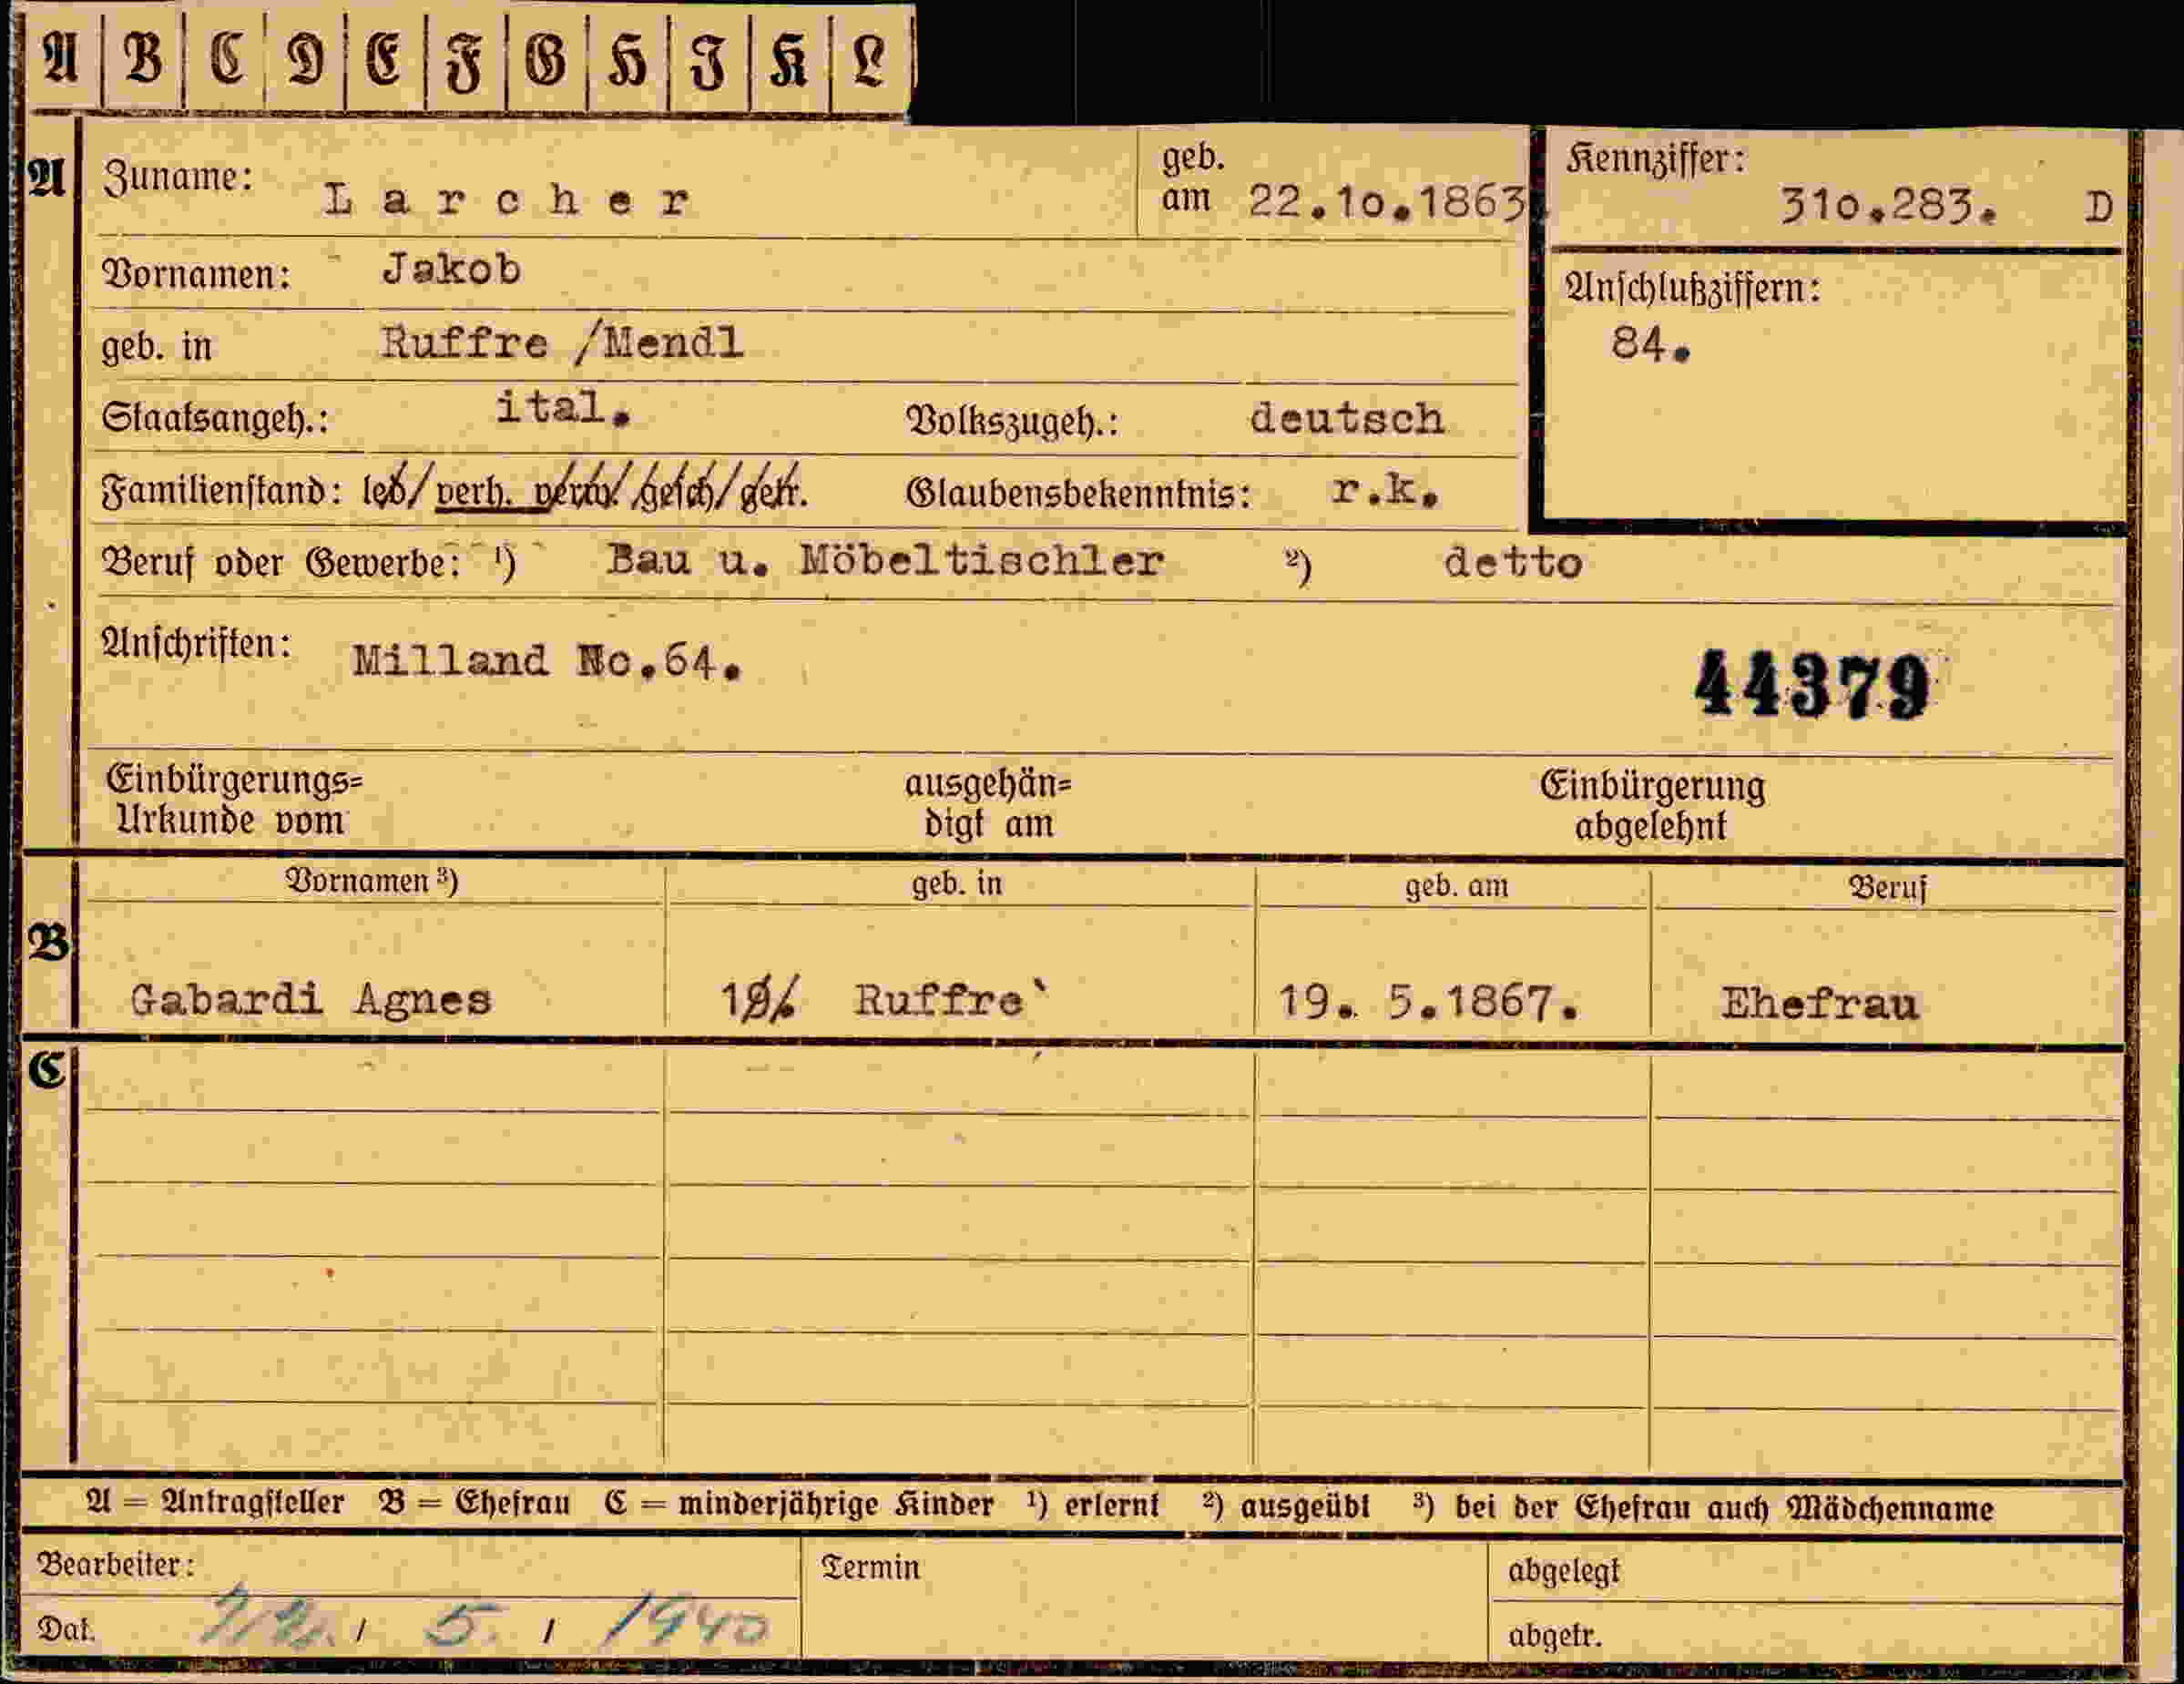 A B C D E F G H I K L
A Zuname: Larcher geb. am 22.10.1863. Kennziffer: 310.283. D
Vornamen: Jakob
Anschlußziffern: 84.
geb. in Ruffre /Mendl
Staatsangeh.: ital. Volkszugeh.: deutsch
Familienstand: led/ verh. verw./ gesch/ getr. Glaubensbekenntnis: r.k.
Beruf oder Gewerbe: ¹) Bau u. Möbeltischler ²) detto
Anschriften: Milland No.64.
44379
Einbürgerungs=
Urkunde vom
ausgehän=
digt am
Einbürgerung
abgelehnt
B Vornamen ³) geb. in geb. am Beruf
Gabardi Agnes Ruffre` 19. 5.1867. Ehefrau
C
A = Antragsteller B = Ehefrau C = minderjährige Kinder ¹) erlernt ²) ausgeübt ³) bei der Ehefrau auch Mädchenname
Bearbeiter: Termin abgelegt
Dat. / 5. / 1940 abgetr.